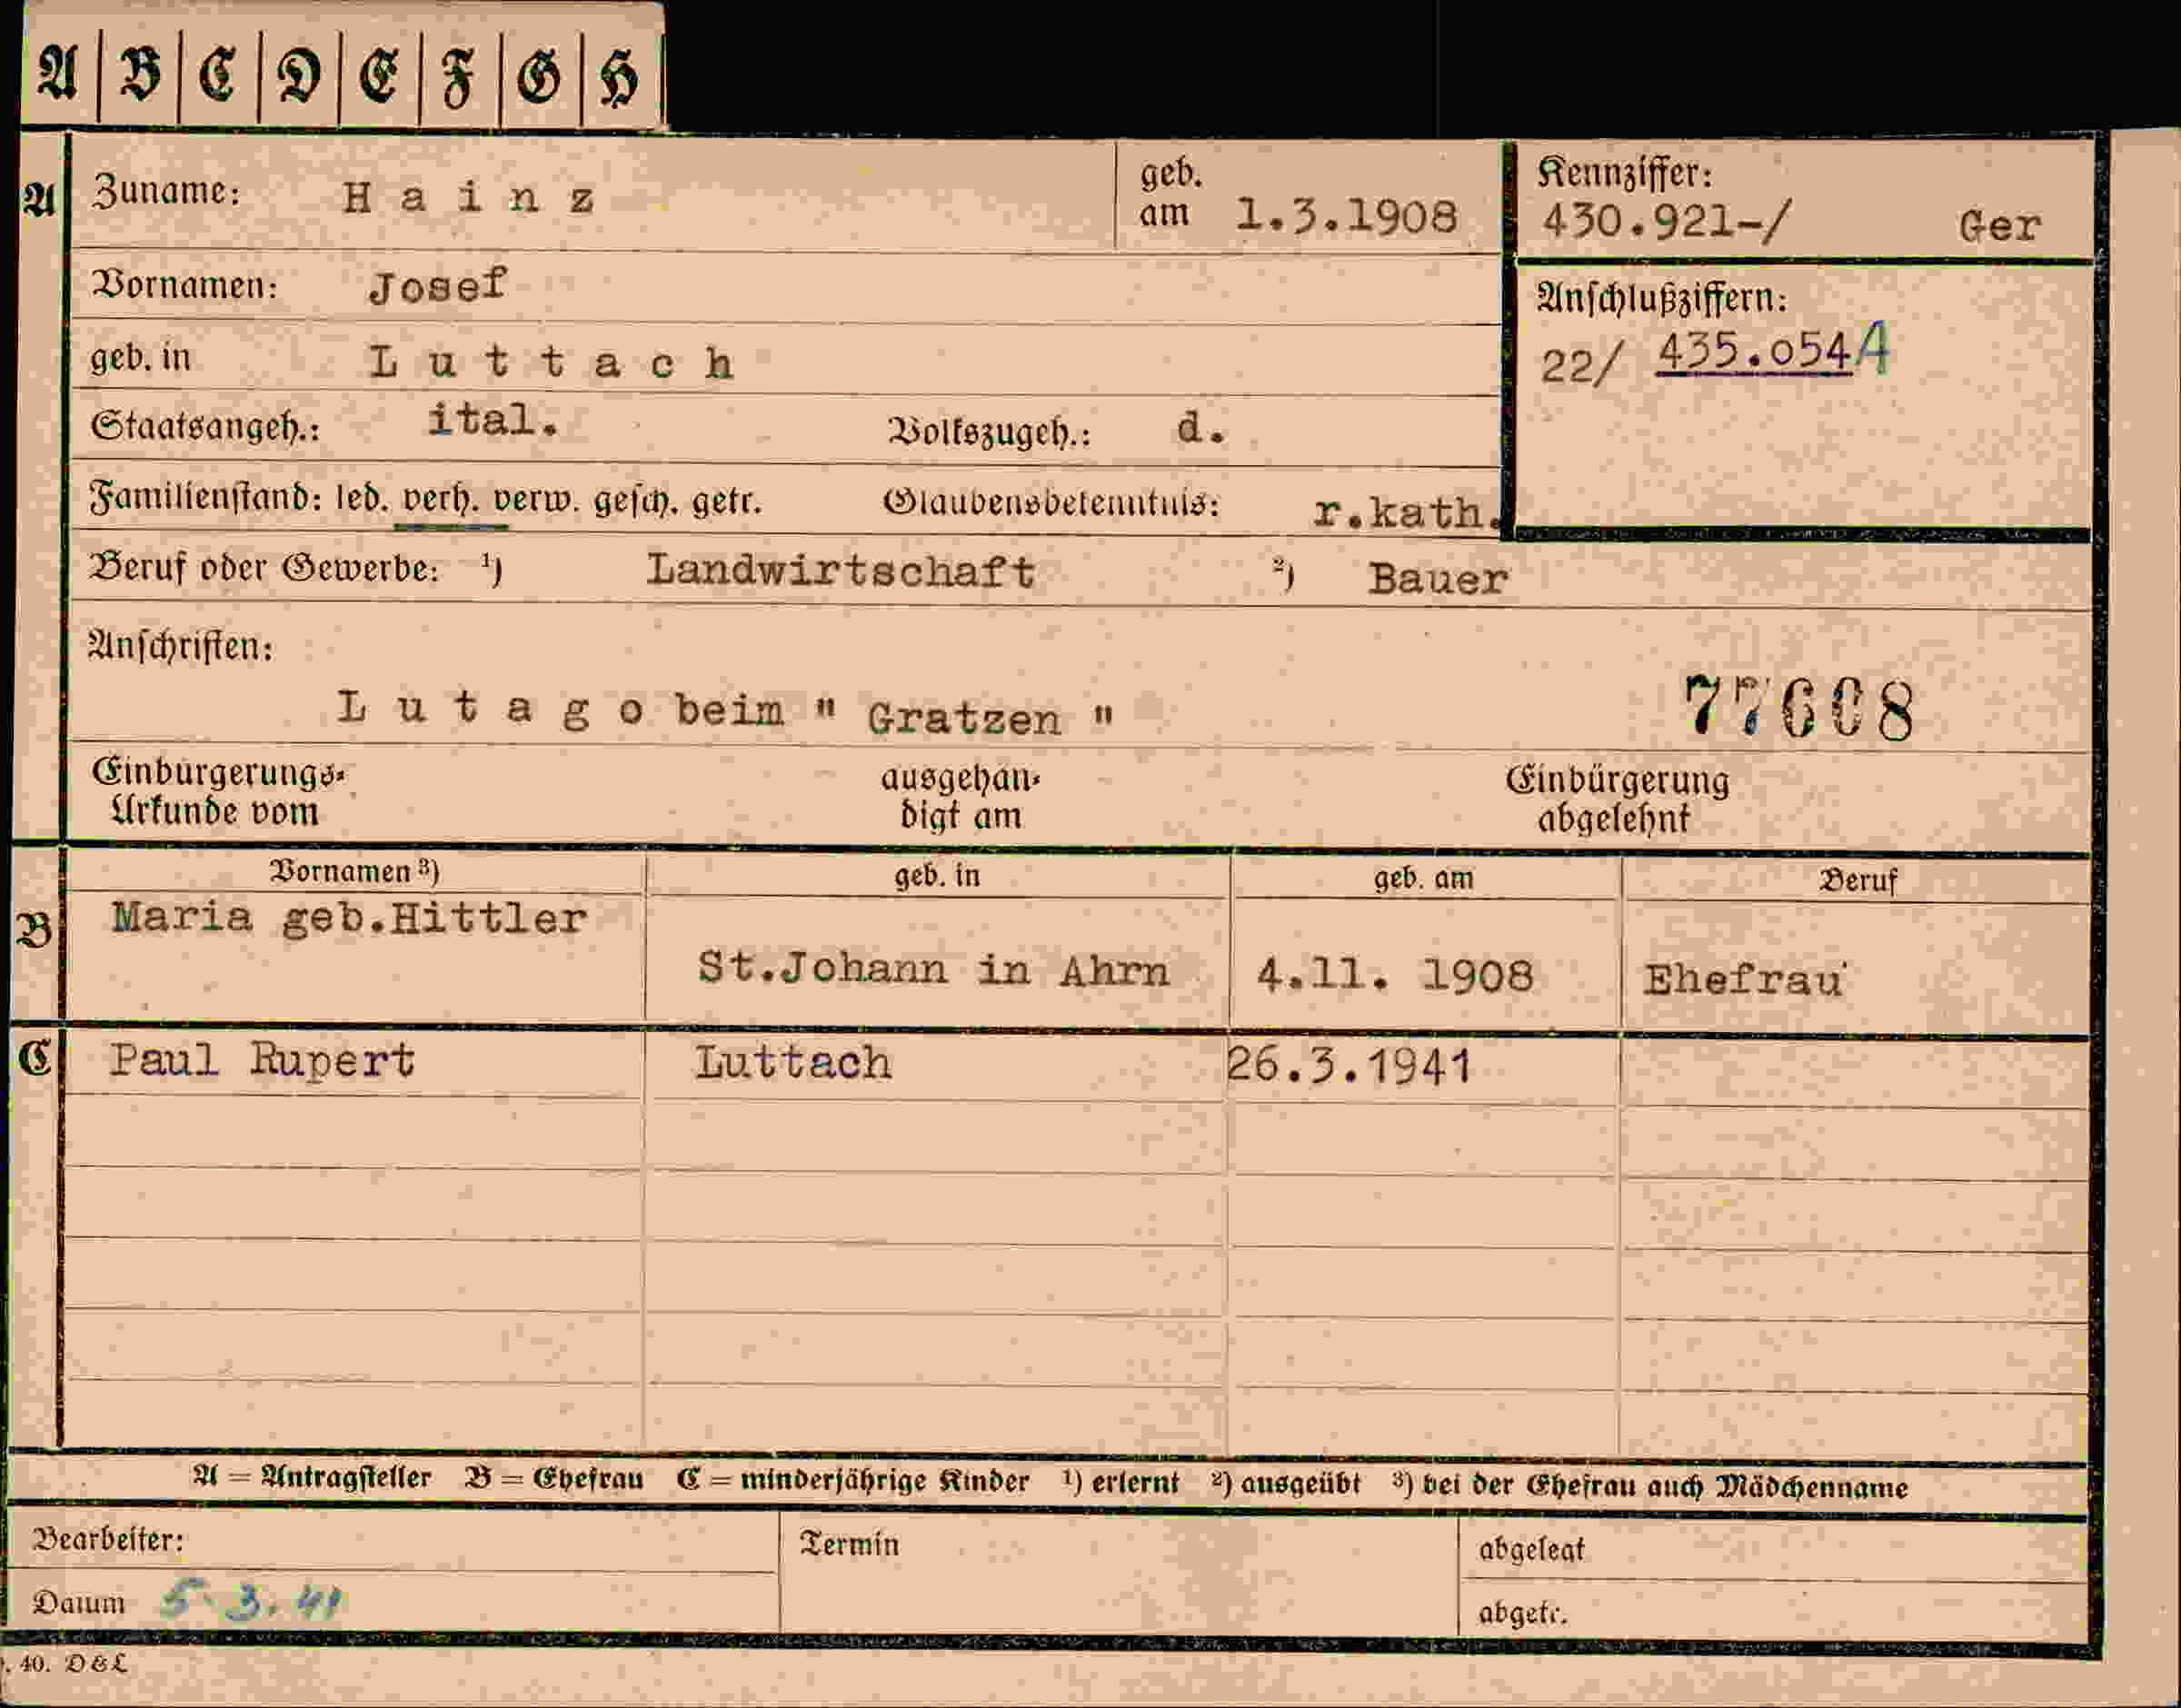 A B C D E F G H
A Zuname: H a i n z geb. am 1.3.1908
Kennziffer: 430.921-/ Ger
Vornamen: Josef
Anschlußziffern:
22/ 435.054 A
geb. in L u t t a c h
Staatsangeh.: ital. Volkszugeh.: d.
Familienstand: led. verh. verw. gesch. getr. Glaubensbekenntnis: r.kath.
Beruf oder Gewerbe: ¹) Landwirtschaft ²) Bauer
Anschriften:
L u t a g o beim " Gratzen "
77608
Einbürgerungs- ausgehän- Einbürgerung
Urkunde vom digt am abgelehnt
Vornamen ³) geb. in geb. am Beruf
B Maria geb.Hittler
St.Johann in Ahrn 4.11. 1908 Ehefrau
C Paul Rupert Luttach 26.3.1941
A = Antragsteller B = Ehefrau C = minderjährige Kinder ¹) erlernt ²) ausgeübt ³) bei der Ehefrau auch Mädchenname
Bearbeiter: Termin abgelegt
Datum 5.3.41 abgetr.
. 40. D & L